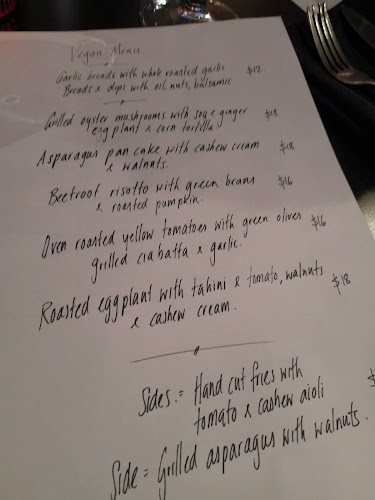 Vegan Menu
Garlic breads with whole roasted garlic $12
Breads & dips with oil, nuts, balsamic
Grilled oyster mushrooms with soy & ginger $18
egg plant & corn tortilla
Asparagus pan cake with cashew cream $18
& walnuts.
Beetroot risotto with green beans $16
& roasted pumpkin.
Oven roasted yellow tomatoes with green olives $16
grilled ciabatta & garlic.
Roasted eggplant with tahini & tomato, walnuts $18
& cashew cream.
Sides = Hand cut fries with $
tomato & cashew aioli
Side = Grilled asparagus with walnuts.